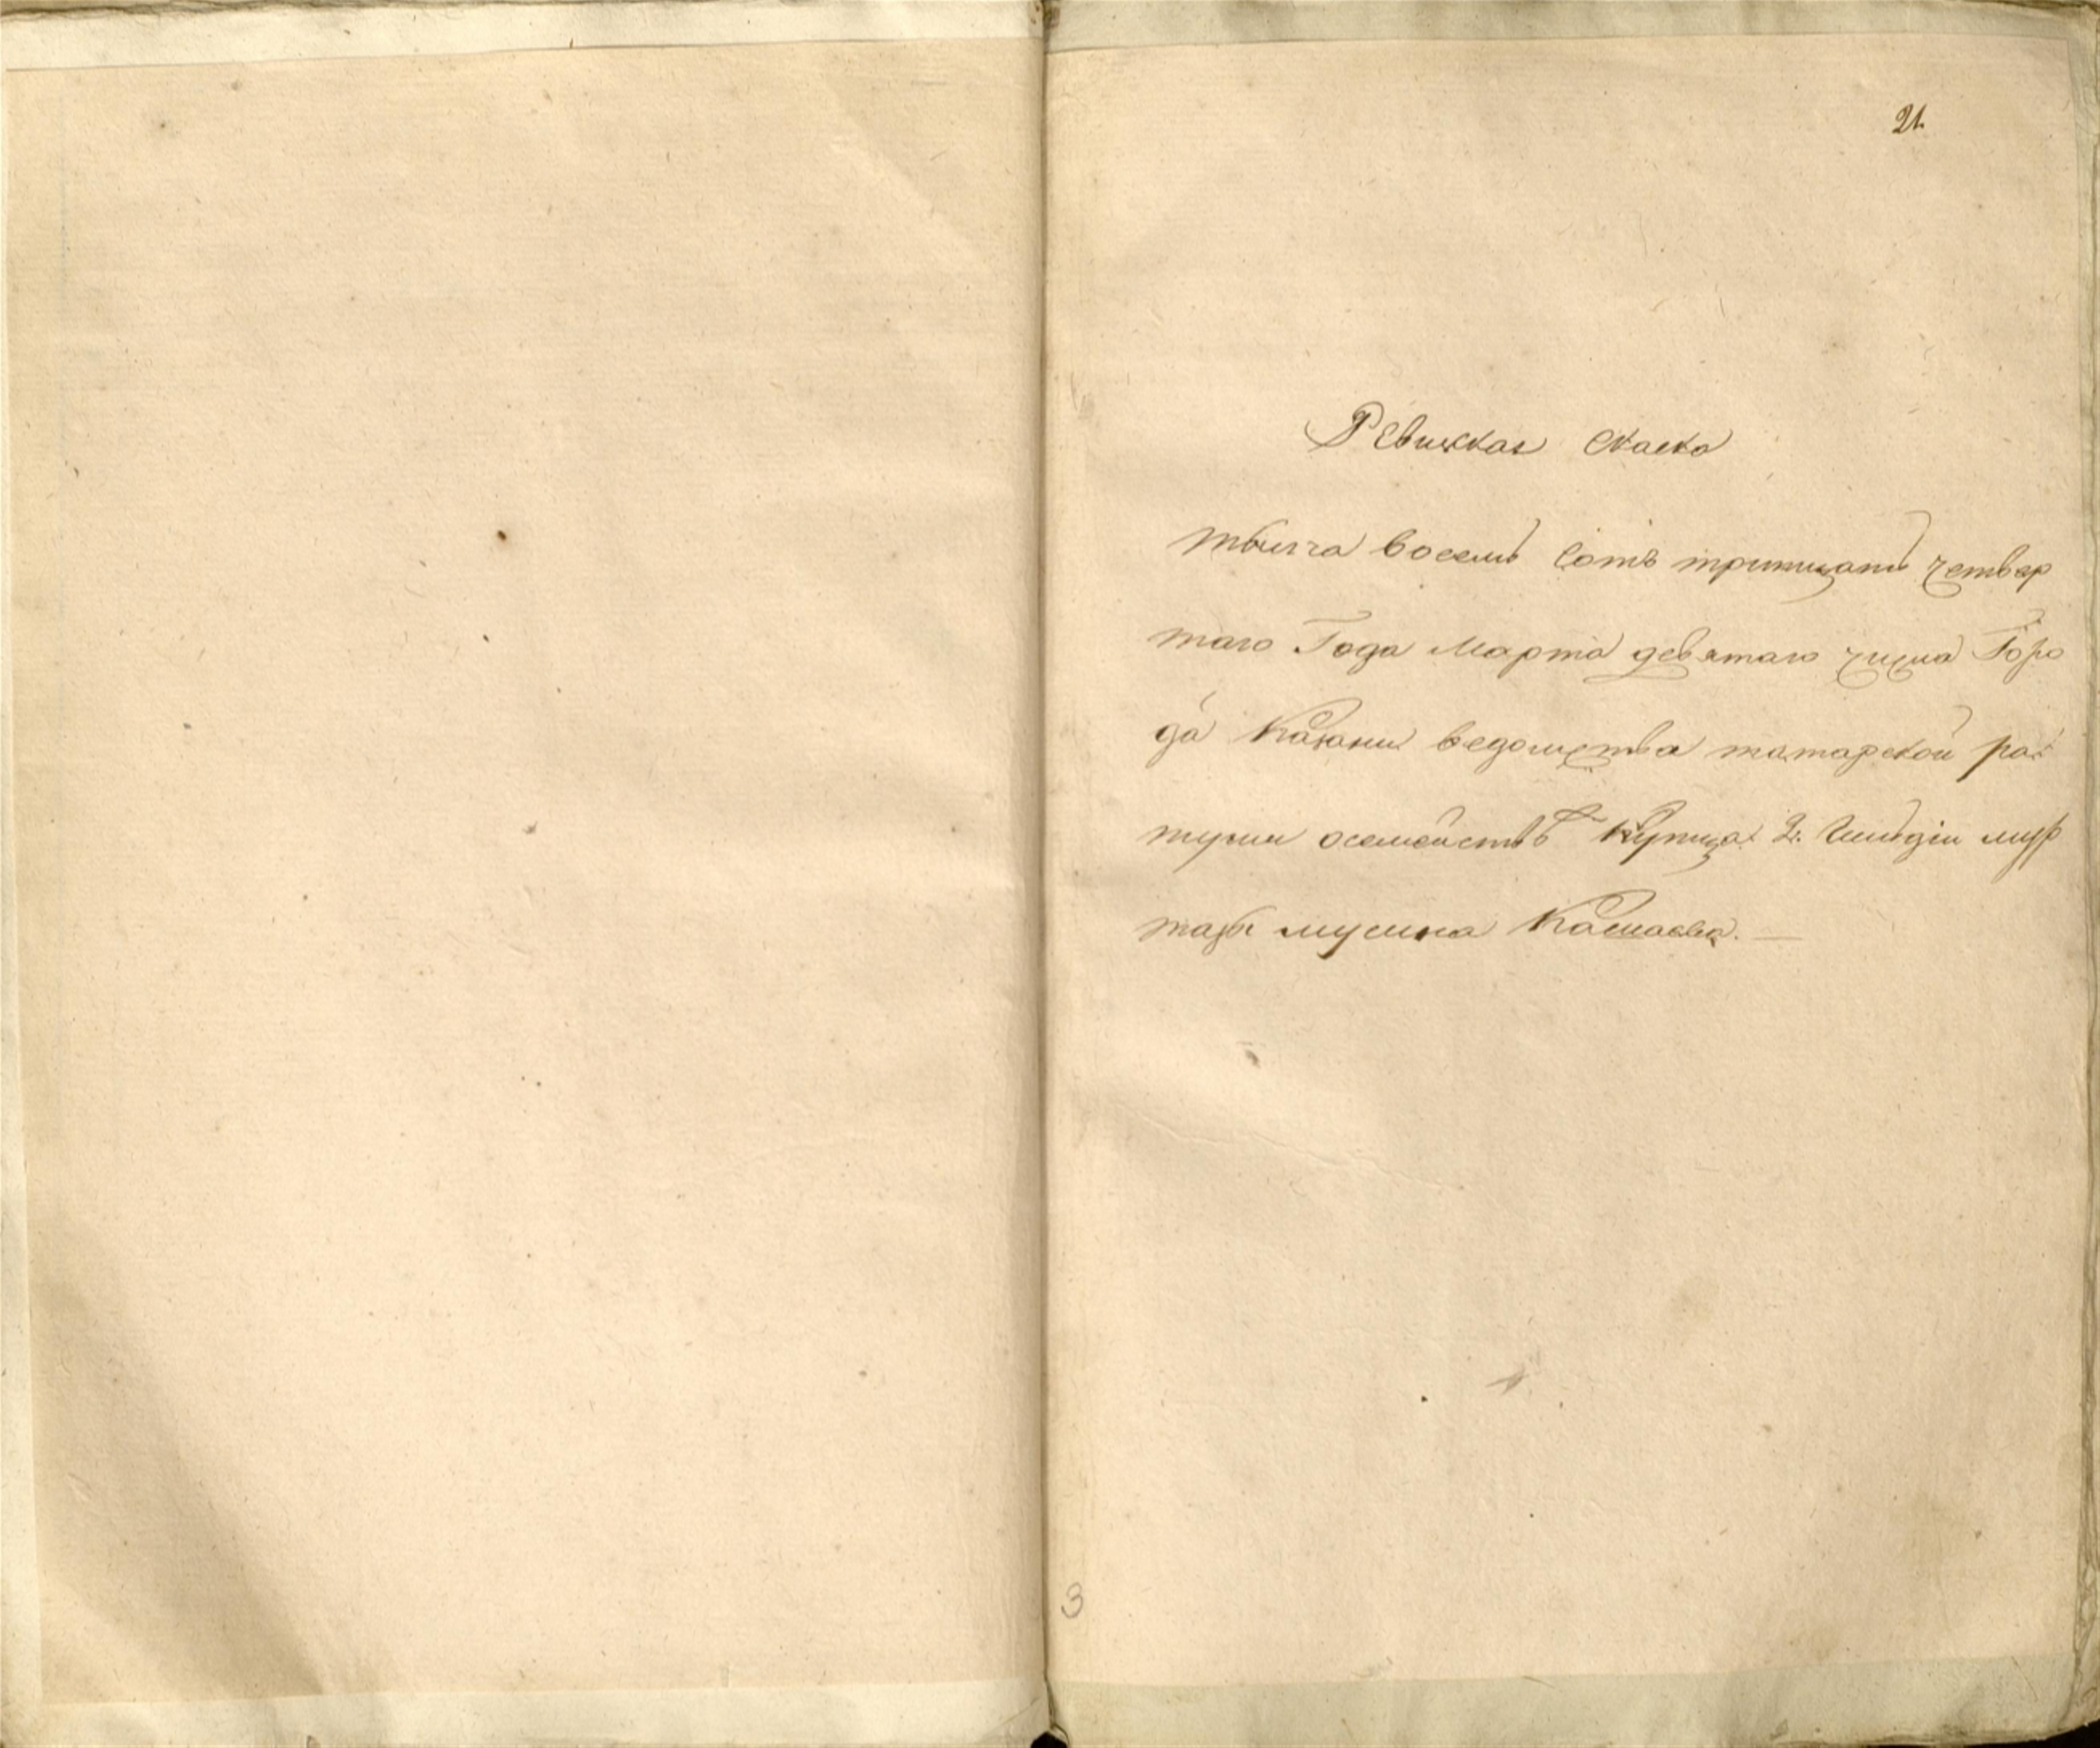 21.
Ревижская скаска
тысеча восемь сотъ тритцать четвер
таго Года марта девятаго числа Горо
да Казани ведомства татарской ра
туши осемействѣ Купца 2. Гильдіи мур
тазы мусина Кашаева. —
3